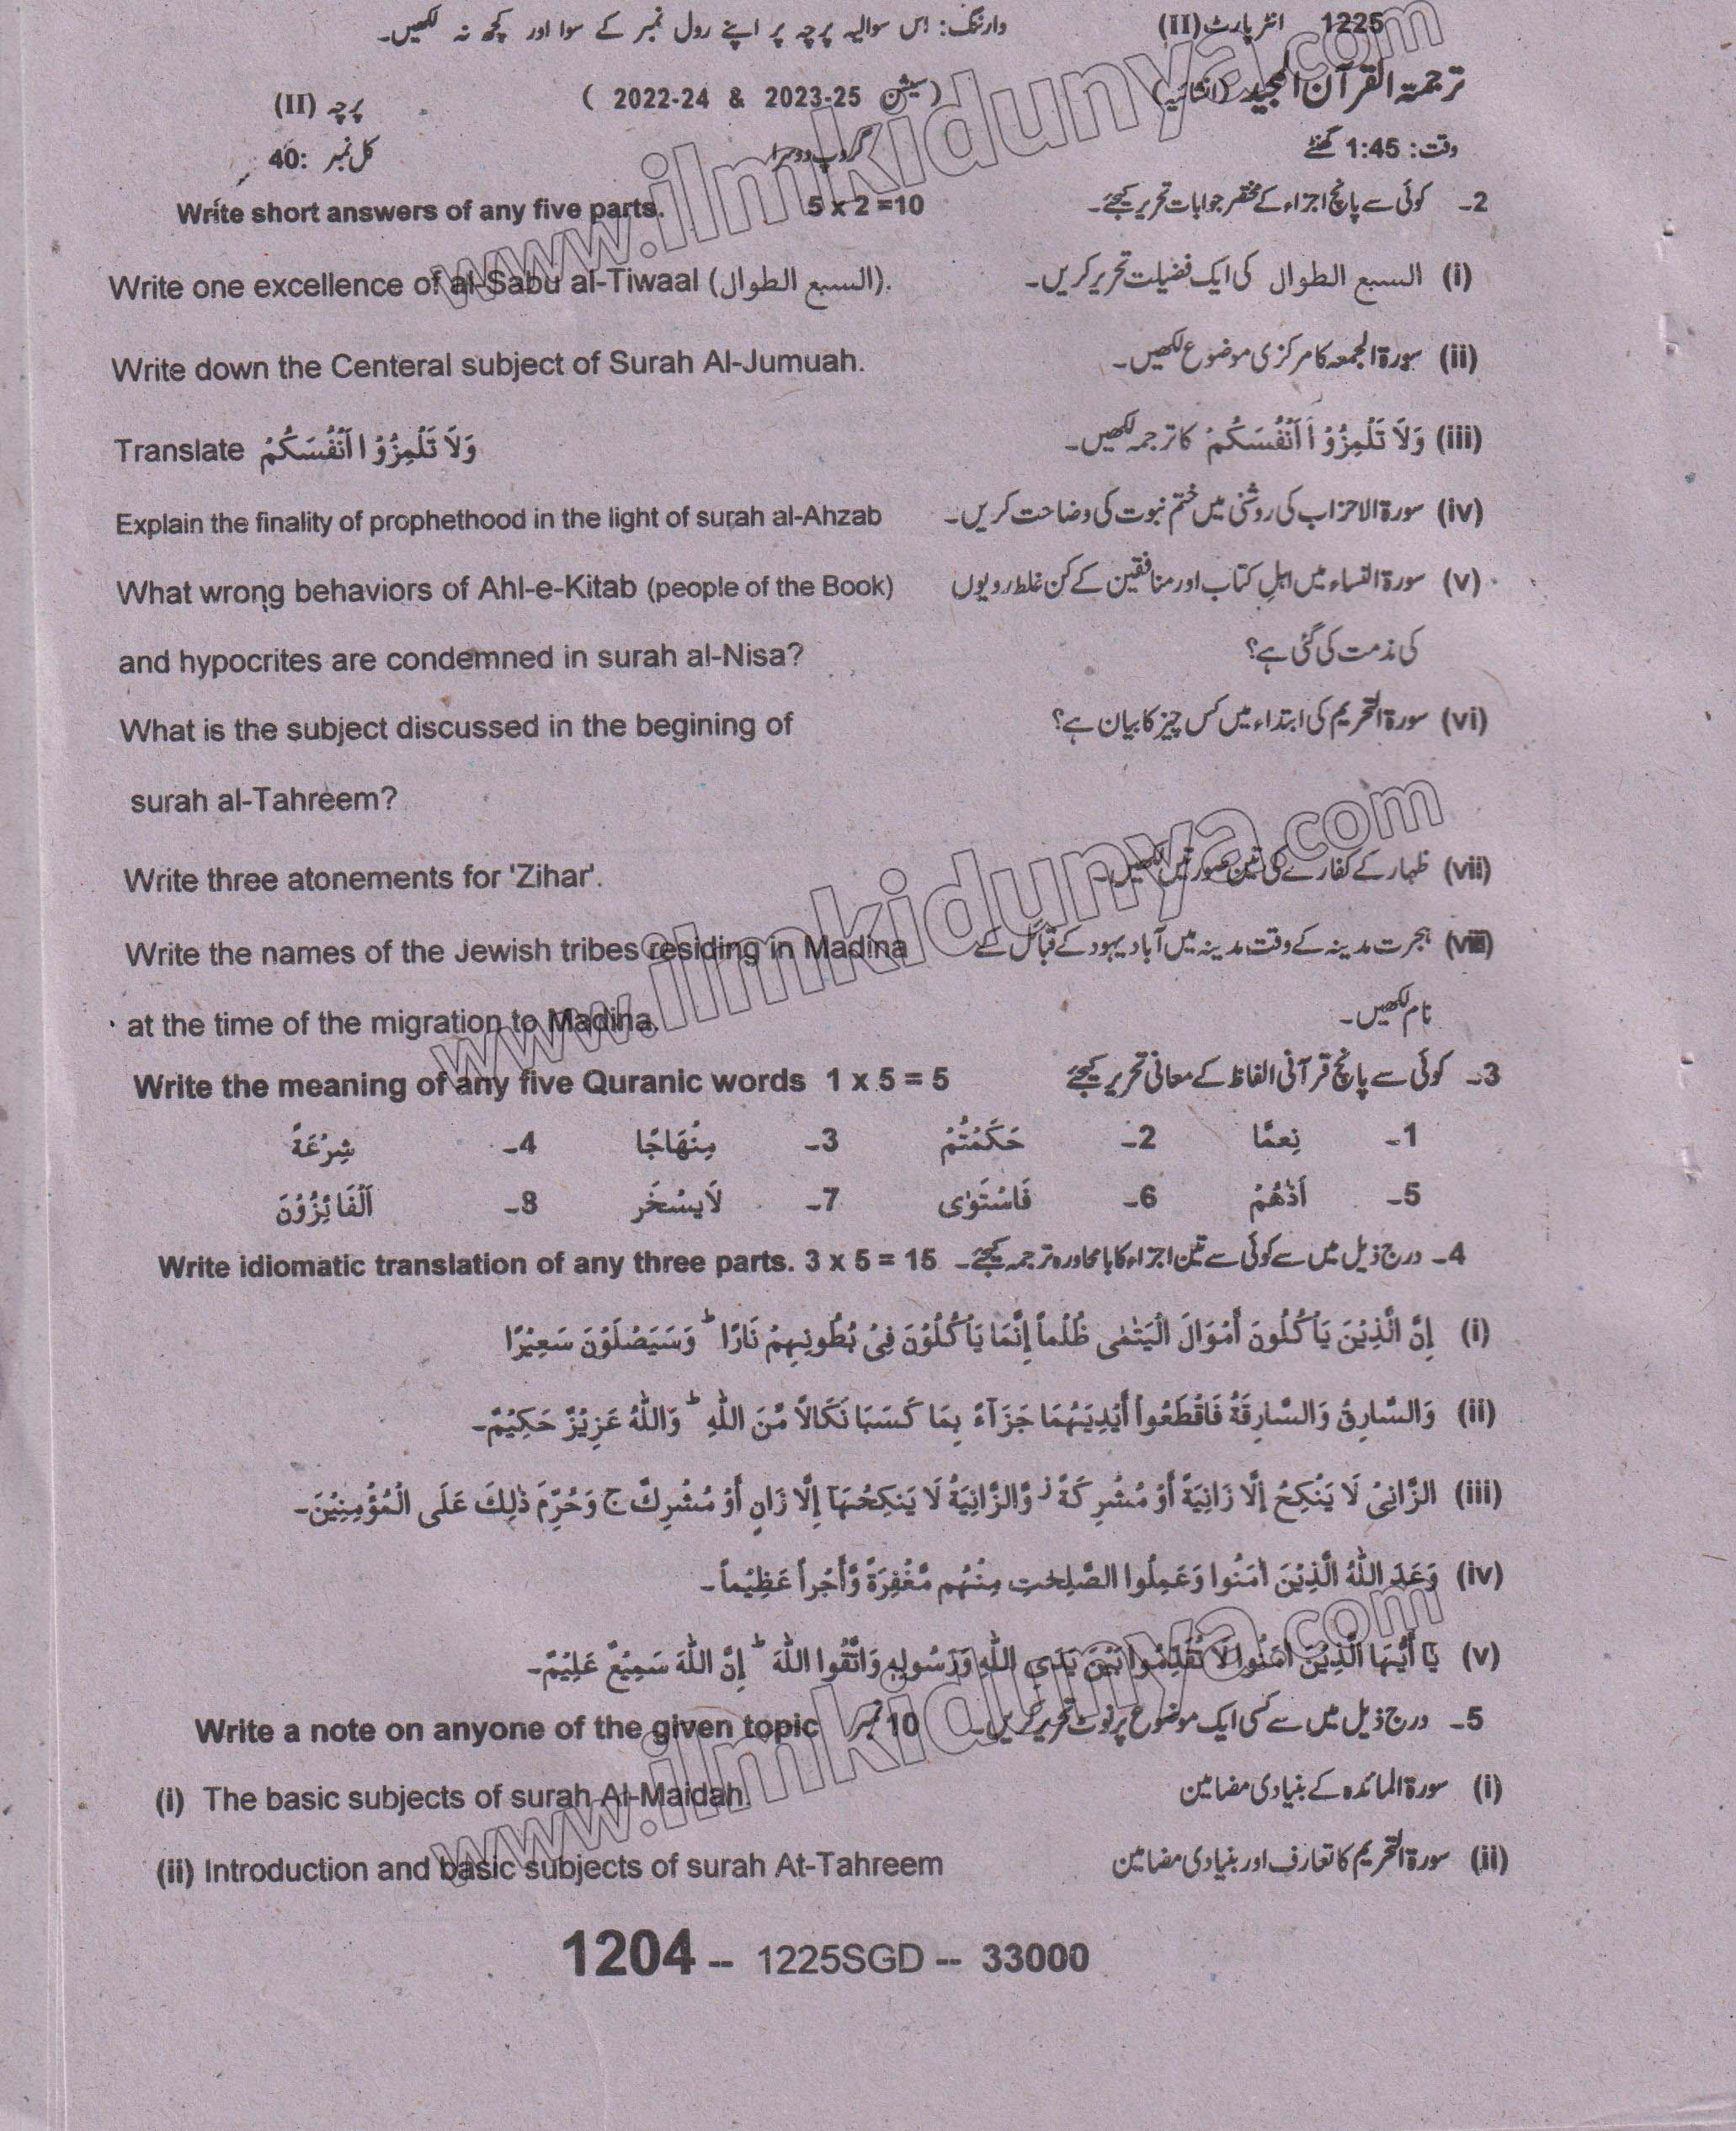 1225 انٹر پارٹ (II) وارننگ: اس سوالیہ پرچہ پر اپنے رول نمبر کے سوا اور کچھ نہ لکھیں۔
ترجمۃ القرآن المجید (انشائیہ) (سیشن 2023-25 & 2022-24) پرچہ (II)
وقت: 1:45 گھنٹے گروپ دوسرا کل نمبر :40
2۔ کوئی سے پانچ اجزاء کے مختصر جوابات تحریر کیجئے۔ 5 x 2 =10 Write short answers of any five parts.
(i) السبع الطوال کی ایک فضیلت تحریر کریں۔ Write one excellence of al-Sabu al-Tiwaal (السبع الطوال).
(ii) سورۃ الجمعہ کا مرکزی موضوع لکھیں۔ Write down the Centeral subject of Surah Al-Jumuah.
(iii) وَلَا تَلْمِزُوْا أَنْفُسَكُمْ کا ترجمہ لکھیں۔ Translate وَلَا تَلْمِزُوْا أَنْفُسَكُمْ
(iv) سورۃ الاحزاب کی روشنی میں ختم نبوت کی وضاحت کریں۔ Explain the finality of prophethood in the light of surah al-Ahzab
(v) سورۃ النساء میں اہلِ کتاب اور منافقین کے کن غلط رویوں What wrong behaviors of Ahl-e-Kitab (people of the Book)
کی مذمت کی گئی ہے؟ and hypocrites are condemned in surah al-Nisa?
(vi) سورۃ التحریم کی ابتداء میں کس چیز کا بیان ہے؟ What is the subject discussed in the begining of
surah al-Tahreem?
(vii) ظہار کے کفارے کی تین صورتیں لکھیں۔ Write three atonements for 'Zihar'.
(viii) ہجرت مدینہ کے وقت مدینہ میں آباد یہود کے قبائل کے Write the names of the Jewish tribes residing in Madina
نام لکھیں۔ at the time of the migration to Madina.
3۔ کوئی سے پانچ قرآنی الفاظ کے معانی تحریر کیجئے Write the meaning of any five Quranic words 1 x 5 = 5
1۔ نِعِمَّا 2۔ حَكَمْتُمْ 3۔ مِنْهَاجًا 4۔ شِرْعَةً
5۔ أَذٰهُمْ 6۔ فَاسْتَوٰى 7۔ لَا يَسْخَر 8۔ اَلْفَائِزُوْنَ
4۔ درج ذیل میں سے کوئی سے تین اجزاء کا بامحاورہ ترجمہ کیجئے۔ Write idiomatic translation of any three parts. 3 x 5 = 15
(i) إِنَّ الَّذِيْنَ يَأْكُلُونَ أَمْوَالَ الْيَتٰمٰى ظُلْماً إِنَّمَا يَأْكُلُوْنَ فِىْ بُطُونِهِمْ نَارًا ؕ وَسَيَصْلَوْنَ سَعِيْرًا
(ii) وَالسَّارِقُ وَالسَّارِقَةُ فَاقْطَعُوا أَيْدِيَهُمَا جَزَآءً بِمَا كَسَبَا نَكَالاً مِّنَ اللّٰهِ ؕ وَاللّٰهُ عَزِيْزٌ حَكِيْمٌ۔
(iii) الزَّانِىْ لَا يَنْكِحُ إِلَّا زَانِيَةً أَوْ مُشْرِكَةً ز وَّالزَّانِيَةُ لَا يَنكِحُهَآ إِلَّا زَانٍ أَوْ مُشْرِكٌ ج وَحُرِّمَ ذٰلِكَ عَلَى الْمُؤْمِنِيْنَ۔
(iv) وَعَدَ اللّٰهُ الَّذِيْنَ اٰمَنُوا وَعَمِلُوا الصّٰلِحٰتِ مِنْهُم مَّغْفِرَةً وَّأَجْراً عَظِيْماً۔
(v) يَا أَيُّهَا الَّذِيْنَ اٰمَنُوا لَا تُقَدِّمُوا بَيْنَ يَدَىِ اللّٰهِ وَرَسُولِهٖ وَاتَّقُوا اللّٰهَ ؕ إِنَّ اللّٰهَ سَمِيْعٌ عَلِيْمٌ۔
5۔ درج ذیل میں سے کسی ایک موضوع پر نوٹ تحریر کریں۔ 10 نمبر Write a note on anyone of the given topic
(i) سورۃ المائدہ کے بنیادی مضامین (i) The basic subjects of surah Al-Maidah
(ii) سورۃ التحریم کا تعارف اور بنیادی مضامین (ii) Introduction and basic subjects of surah At-Tahreem
1204 -- 1225SGD -- 33000
www.ilmkidunya.com
www.ilmkidunya.com
www.ilmkidunya.com